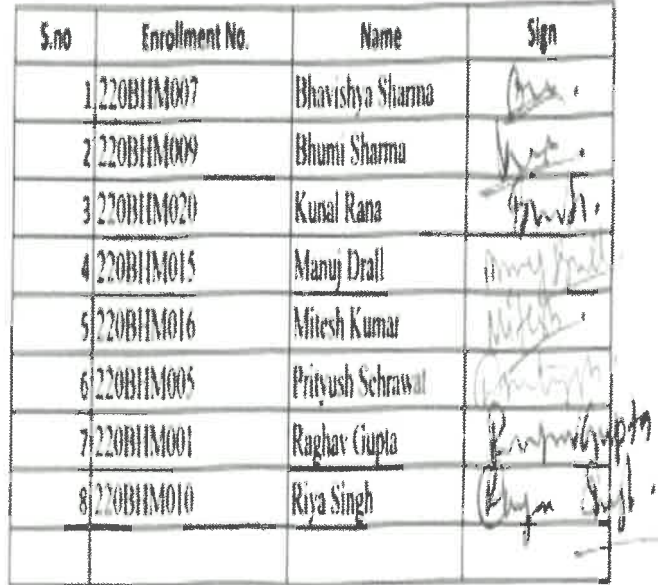 S.no Enrollment No. Name Sign
1 220BHM007 Bhavishya Sharma
2 220BHM009 Bhumi Sharma
3 220BHM020 Kunal Rana
4 220BHM015 Manuj Drall
5 220BHM016 Mitesh Kumar Mitesh
6 220BHM005 Prityush Sehrawat
7 220BHM001 Raghav Gupta Gupta
8 220BHM010 Riya Singh